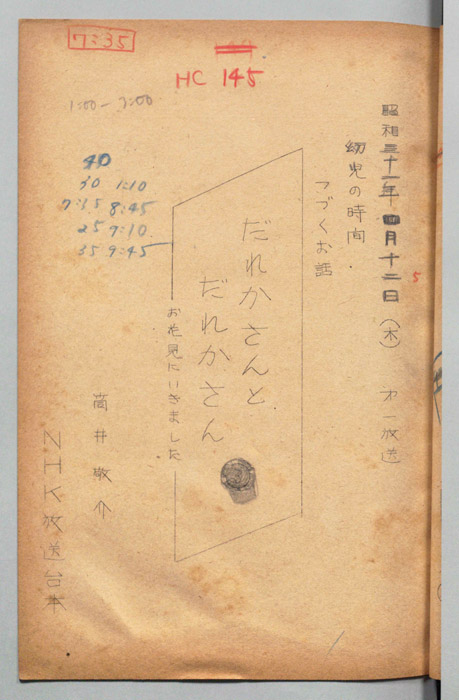 7:35
HC 145
1:00-3:00
40
30 1:10
7:35 8:45
25 7:10
35 9:45
昭和三十一年四月十二日(木) 第一放送
5
幼児の時間
つづくお話
だれかさんと
だれかさん
お花見にいきました
筒井敬介
NHK放送台本